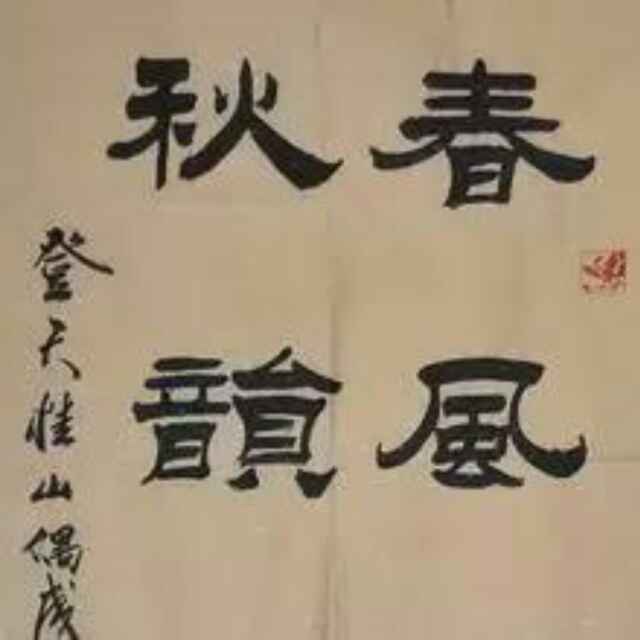 春風
秋韻
登天桂山偶成